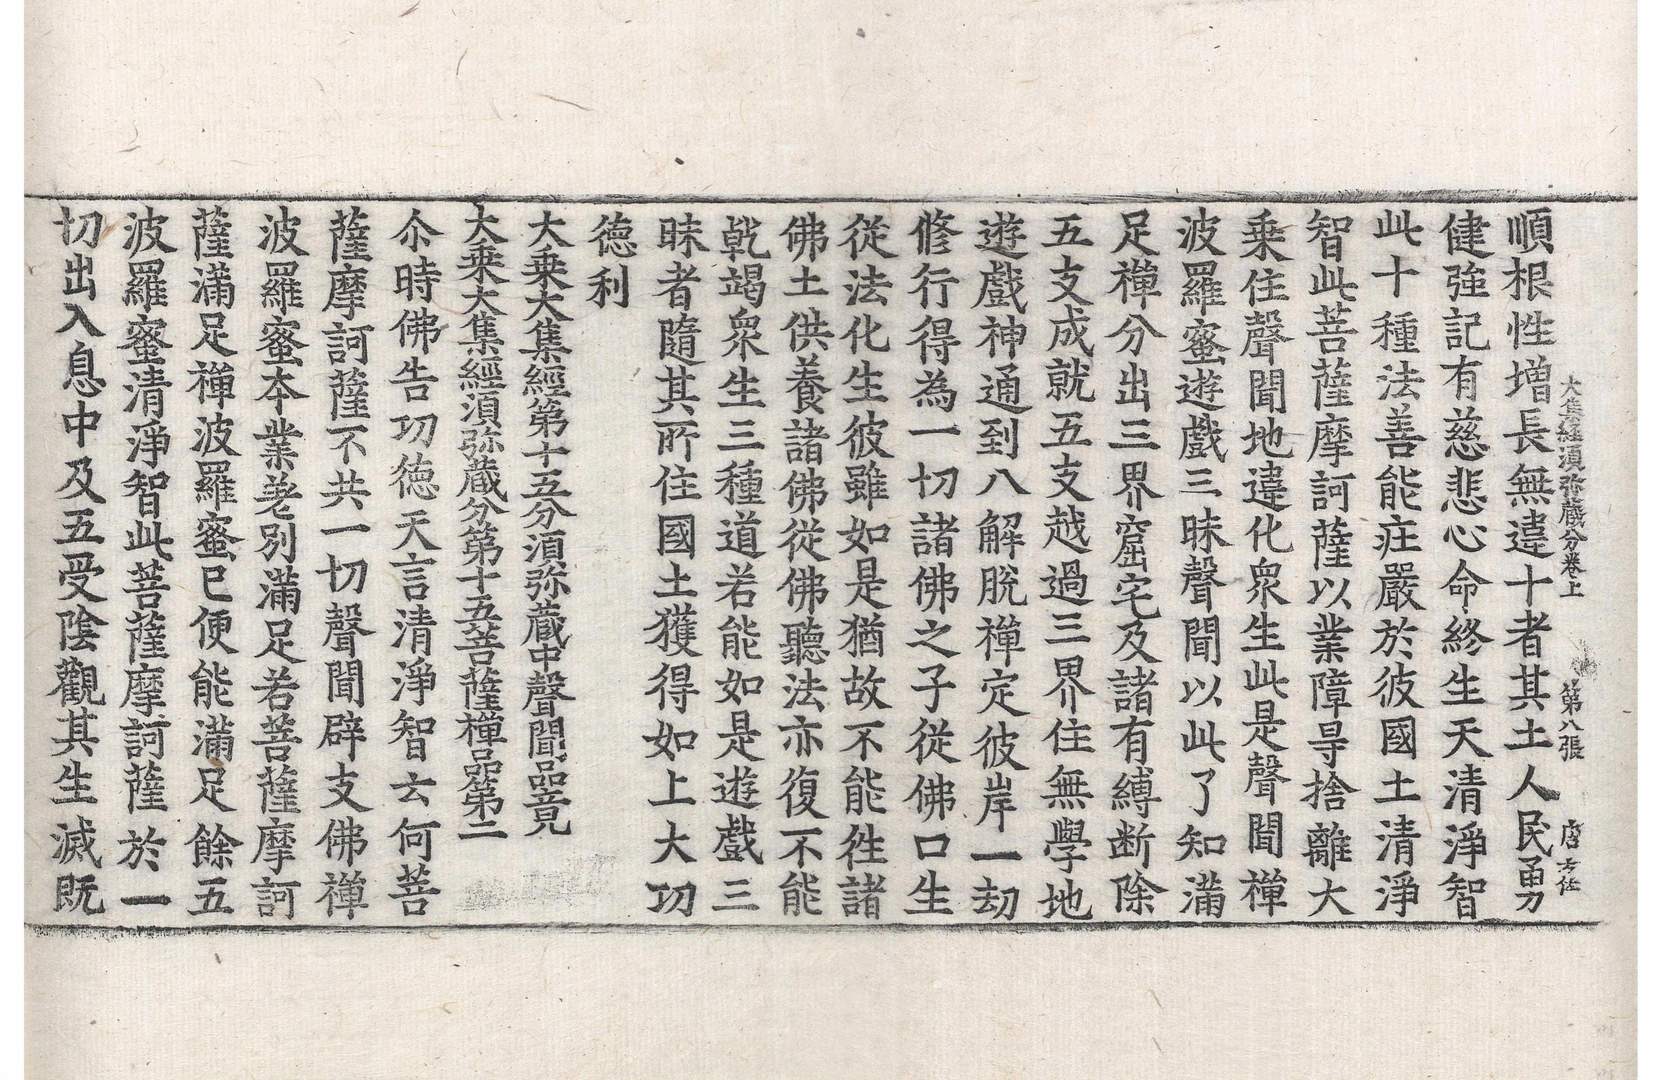 大集經湏弥藏分卷上 第八張
順根性增長無違十者其土人民勇
健強記有慈悲心命終生天清淨智
此十種法善能庄嚴於彼國土清淨
智此菩薩摩訶薩以業障㝵捨離大
乘住聲聞地違化衆生此是聲聞禪
波羅蜜遊戲三昧聲聞以此了知滿
足禪分出三界窟宅及諸有縛断除
五支成就五支越過三界住無學地
遊戲神通到八解脫禪定彼岸一劫
修行得為一切諸佛之子從佛口生
從法化生彼雖如是猶故不能徃諸
佛土供養諸佛從佛聽法亦復不能
乹竭衆生三種道若能如是遊戲三
昧者隨其所住國土獲得如上大功
德利
大乗大集經第十五分湏弥藏中聲聞品竟
大乗大集經湏弥藏分第十五菩薩禪品第二
尒時佛告功德天言清淨智云何菩
薩摩訶薩不共一切聲聞辟支佛禪
波羅蜜本業差別滿足若菩薩摩訶
薩滿足禪波羅蜜已便能滿足餘五
波羅蜜清淨智此菩薩摩訶薩於一
切出入息中及五受陰觀其生滅既